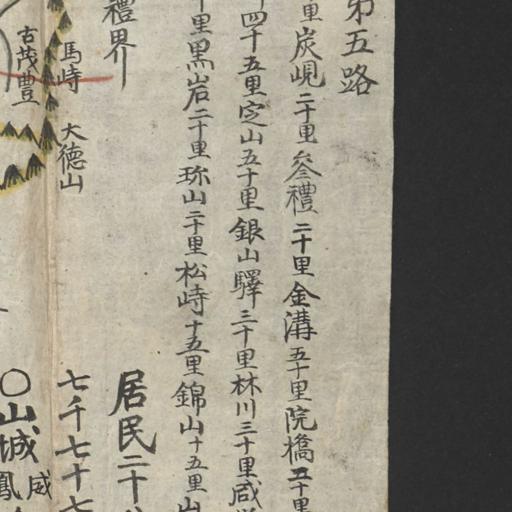 第五路
里炭峴二十里參禮二十里金溝五十里院橋五十里
四十五里定山五十里銀山驛三十里林川三十里咸
十里黑岩二十里珎山二十里松峙十五里錦山十五里
禮界
居民二十
馬峙 大德山
七千七十七
古茂豊
○山城
威
鳳